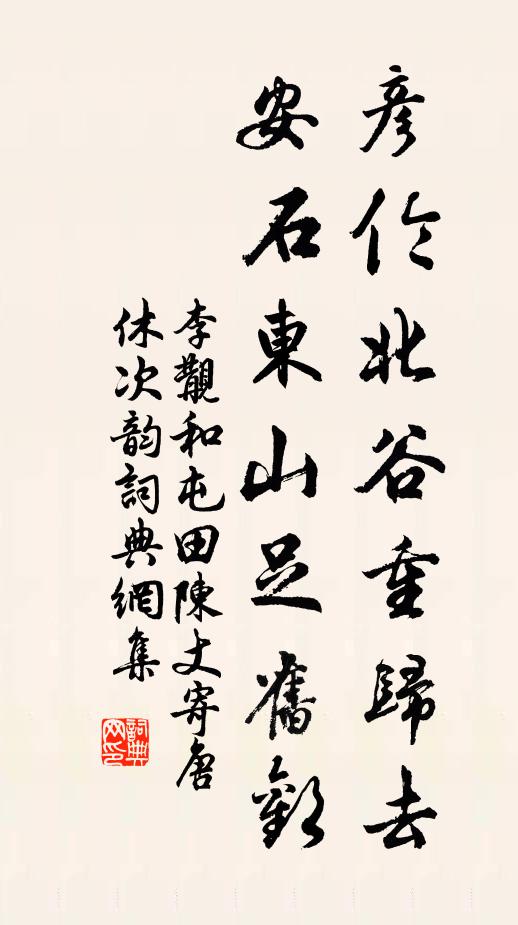 彦伦北谷重歸去
安石東山足舊歡
李覯和屯田陳丈寄唐
休次韵詞典網集
詞典
网印